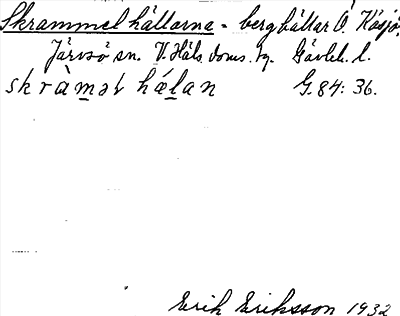 Skrammelhällarna - berghällar Ö. Kåsjö,
Järvsö sn. V. Häls. doms. tg. Gävleb. l.
skràmət hǽlan G. 84: 36.
Erik Eriksson 1932